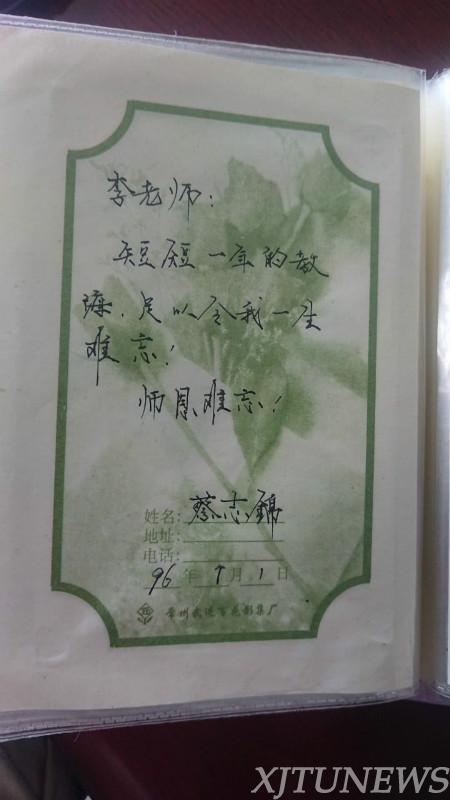 李老师：
短短一年的教
诲，足以令我一生
难忘！
师恩难忘！
姓名：蔡志錦
地址：
电话：
96年7月1日
常州武进百花影集厂
XJTUNEWS